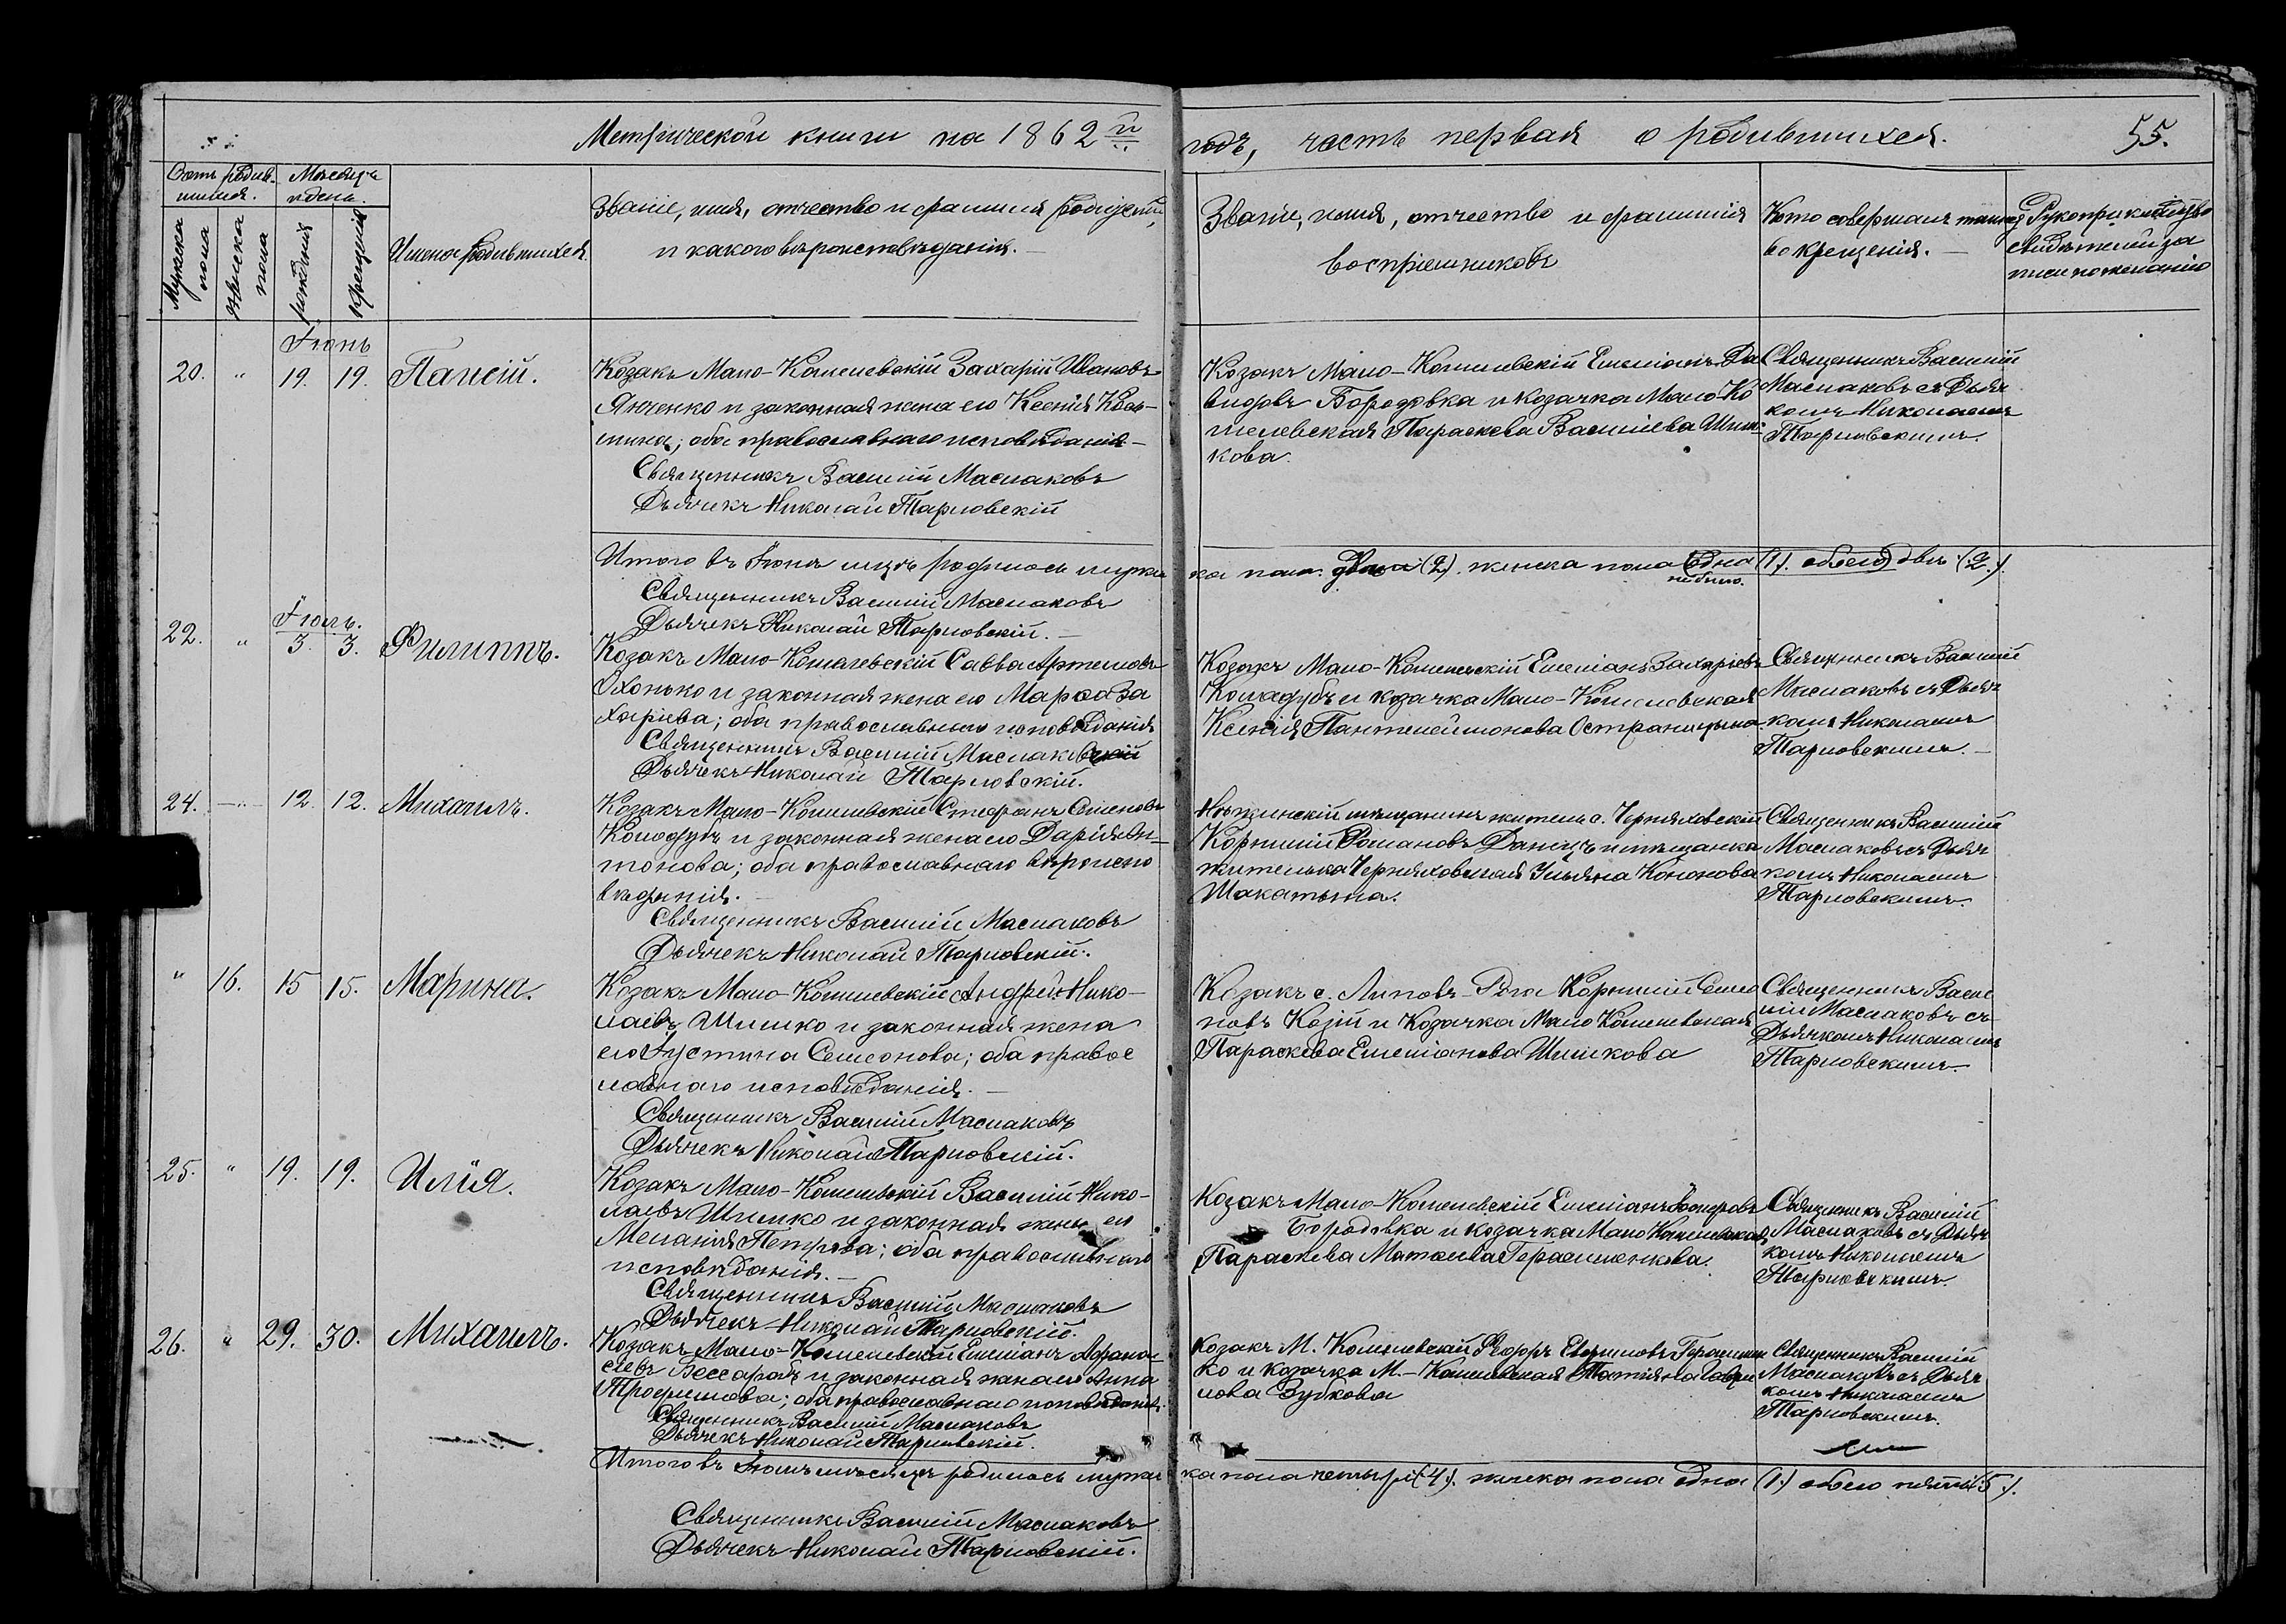 Метрической книги на 1862й годъ, часть первая о родившихся. 55.
Счетъ родив-
шихся.
Мѣсяцъ
и день.
Мужеска
пола
Женска
пола
рожденія
крещенія
Имена родившихся.
Званіе, имя, отчество и фамилія родителей,
и какого вѣроисповѣданія. —
Званіе, имя, отчество и фамилія
воспріемниковъ
Кто совершалъ таинст
во крещенія. —
Рукоприкладство
свидѣтелей за
писи по желанію
Іюнь
20. " 19. 19. Паисій.
Козакъ Мало-Кошелевскій Захарій Ивановъ
Янченко и законная жена его Ксенія Кось-
мина; оба православнаго исповѣданія —
Священникъ Василій Маслаковъ
Дьячекъ Николай Тарновскій
Козакъ Мало-Кошелевскій Емеліанъ Да
видовъ Бородовка и козачка Мало-Ко
шелевская Параскева Василіева Шиш-
кова.
Священникъ Василій
Маслаковъ съ Дьяч
комъ Николаемъ
Тарновскимъ.
Итого въ Іюнѣ мцѣ родилось мужес
ка пола два (2). женска пола одна (1). обоего двѣ (2).
не было.
Священникъ Василій Маслаковъ
Дьячекъ Николай Тарновскій. —
Іюль.
22. " 3. 3. Филиппъ.
Козакъ Мало-Кошелевскій Савва Артемовъ
Охонько и законная жена его Марфа За
харіева; оба православнаго исповѣданія
Священникъ Василій Маслаковъ
Дьячекъ Николай Тарновскій.
Козакъ Мало-Кошелевскій Емеліанъ Захаріевъ
Коладубъ и козачка Мало-Кошелевская
Ксенія Пантелеймонова Остраницына.
Священникъ Василій
Маслаковъ съ Дьяч
комъ Николаемъ
Тарновскимъ. —
24. —"— 12. 12. Михаилъ.
Козакъ Мало-Кошелевскій Стефанъ Семеновъ
Колодубъ и законная жена его Дарія Ан-
тонова; оба православнаго вѣроиспо
вѣданія. —
Священникъ Василій Маслаковъ
Дьячекъ Николай Тарновскій.
Нѣжинскій мѣщанинъ житель с. Черняховскій
Корнилій Романовъ Даничъ и мѣщанка
жителька Черняховская Ульяна Кононова
Шакатына.
Священникъ Василій
Маслаковъ съ Дьяч
комъ Николаемъ
Тарновскимъ.
" 16. 15 15. Марина.
Козакъ Мало-Кошелевскій Андрей Нико-
лаевъ Шишко и законная жена
его Іустина Семеонова; оба правос
лавнаго исповѣданія. —
Священникъ Василій Маслаковъ
Дьячекъ Николай Тарновскій.
Козакъ с. Липовъ-Рога Корнилій Семе
новъ Козій и Козачка Мало Кошелевская
Параскева Емеліанова Шишкова
Священникъ Васи
лій Маслаковъ съ
Дьячкомъ Николаемъ
Тарновскимъ.
25. " 19. 19. Илія.
Козакъ Мало-Кошелевскій Василій Нико-
лаевъ Шишко и законная жена его
Меланія Петрова; оба православнаго
исповѣданія. —
Священникъ Василій Маслаковъ
Дьячекъ Николай Тарновскій.
Козакъ Мало-Кошелевскій Емеліанъ
Бородовка и козачка Мало Кошелевская
Параскева Матѳеева Герасименкова.
Священникъ Василій
Маслаковъ съ Дьяч
комъ Николаемъ
Тарновскимъ
26. " 29. 30. Михаилъ.
Козакъ Мало-Кошелевскій Емеліанъ Афана-
сіевъ Бессарабъ и законная жена его Анна
Трофимова; оба православнаго исповѣданія.
Священникъ Василій Маслаковъ
Дьячекъ Николай Тарновскій.
Козакъ М. Кошелевскій Ѳеодоръ Евфимовъ Герасимен
ко и козачка М.-Кошелевская Татіяна Гаври
лова Зубкова
Священникъ Василій
Маслаковъ съ Дьяч
комъ Николаемъ
Тарновскимъ.
Итого въ Іюлѣ мѣсяцѣ родилось мужес
ка пола четыре (4). женска пола одна (1.) обоего пять (5).
Священникъ Василій Маслаковъ
Дьячекъ Николай Тарновскій.